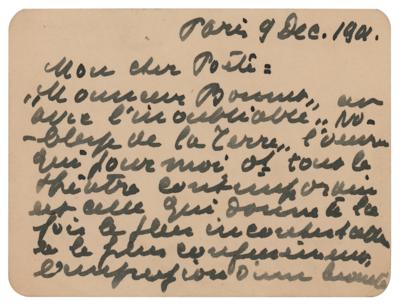 Paris 9 Dec. 1901.
Mon cher Poète:
"Monsieur Bonnet", est
avec l'inoubliable "No-
blesse de la Terre", l'œuvre
qui pour moi et tout le
théâtre contemporain
est celle qui donne à la
fois le plus incontestable
et le plus
l'impression d'une